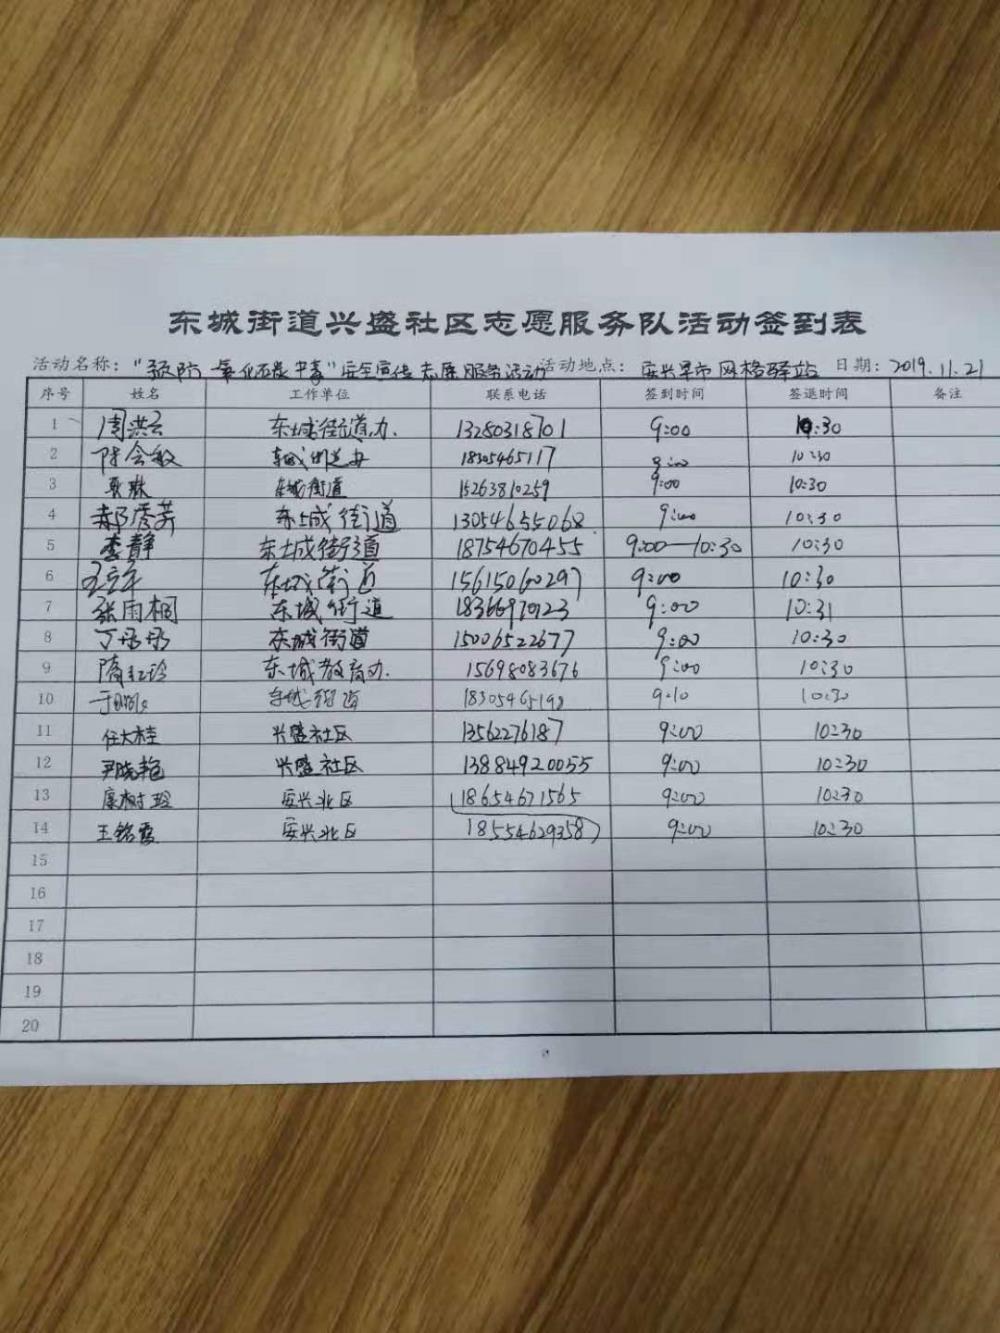 东城街道兴盛社区志愿服务队活动签到表
活动名称："预防一氧化碳中毒"安全宣传志愿服务活动 活动地点：安兴早市网格驿站 日期：2019.11.21
序号 姓名 工作单位 联系电话 签到时间 签退时间 备注
1 周洪云 东城街道办. 13280318701 9:00 10:30
2 陈会敏 东城街道办 18305465117 9:00 10:30
3 东城街道 15263810259 9:00 10:30
4 郝秀芳 东城街道 13054655068 9:00 10:30
5 李静 东城街道 18754670455 9:00—10:30 10:30
6 东城街道 15615060297 9:00 10:30
7 张雨桐 东城街道 9:00 10:31
8 丁彤彤 东城街道 15006522677 9:00 10:30
9 隋红玲 东城教育办. 15698083676 9:00 10:30
10 东城街道 9:10 10:30
11 任大桂 兴盛社区 13562276187 9:00 10:30
12 尹晓艳 兴盛社区 13884920055 9:00 10:30
13 康树玲 安兴北区 18654671565 9:00 10:30
14 王铭霞 安兴北区 18554629358 9:00 10:30
15
16
17
18
19
20